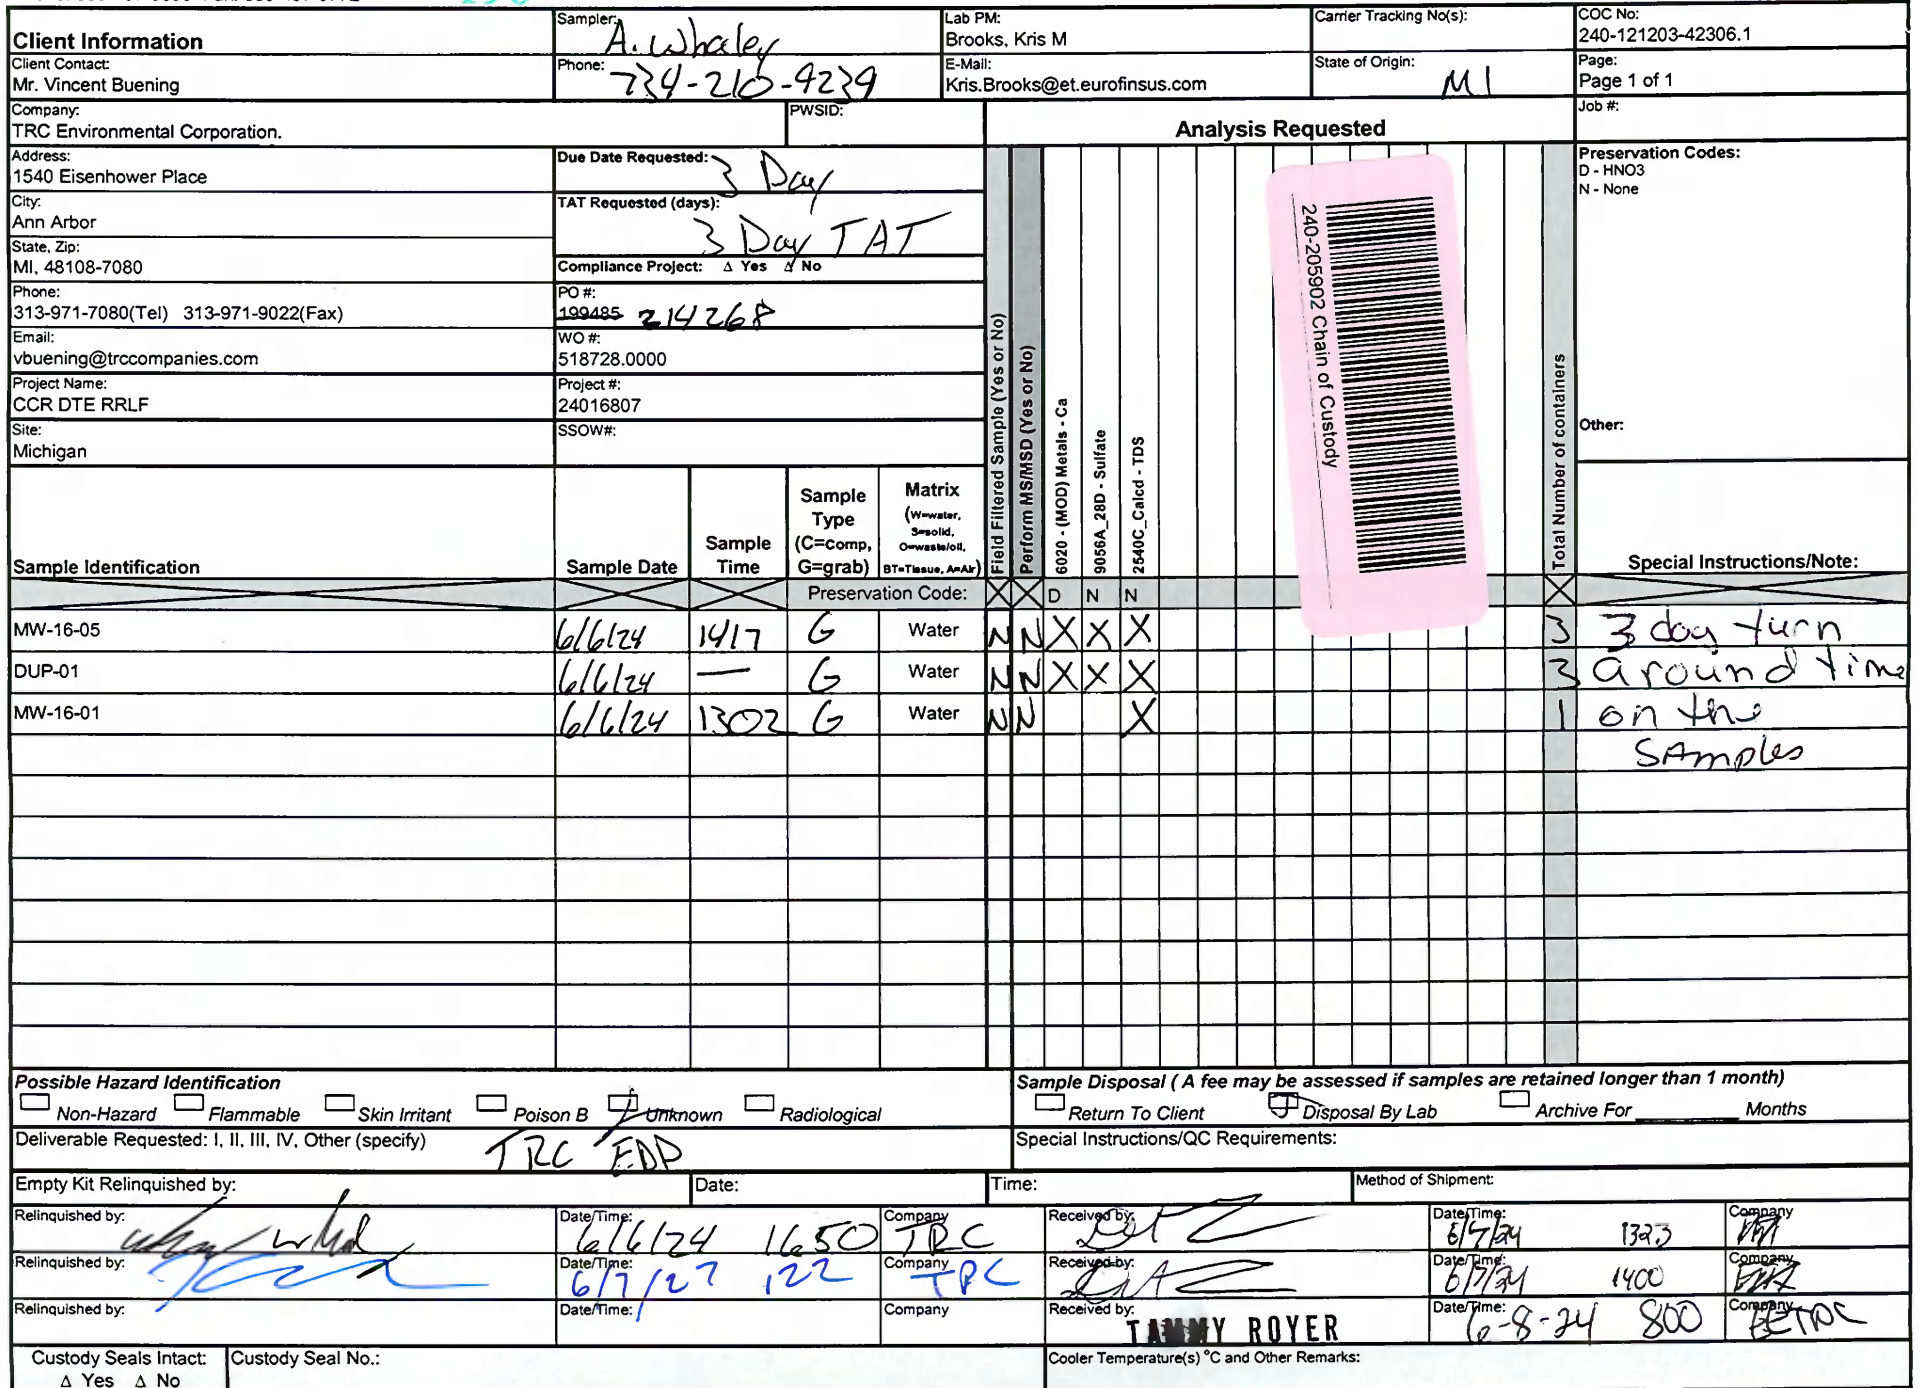 Client Information
Sampler: A. Whaley
Lab PM:
Brooks, Kris M
Carrier Tracking No(s):
COC No:
240-121203-42306.1
Client Contact:
Mr. Vincent Buening
Phone: 734-210-4239
E-Mail:
Kris.Brooks@et.eurofinsus.com
State of Origin: MI
Page:
Page 1 of 1
Company:
TRC Environmental Corporation.
PWSID:
Analysis Requested
Job #:
Address:
1540 Eisenhower Place
Due Date Requested: 3 Day
City:
Ann Arbor
TAT Requested (days):
3 Day TAT
State, Zip:
MI, 48108-7080
Compliance Project: Δ Yes Δ No
Phone:
313-971-7080(Tel) 313-971-9022(Fax)
PO #:
199485 214268
Email:
vbuening@trccompanies.com
WO #:
518728.0000
Project Name:
CCR DTE RRLF
Project #:
24016807
Site:
Michigan
SSOW#:
Field Filtered Sample (Yes or No)
Perform MS/MSD (Yes or No)
6020 - (MOD) Metals - Ca
9056A_28D - Sulfate
2540C_Calcd - TDS
240-205902 Chain of Custody
Total Number of containers
Preservation Codes:
D - HNO3
N - None
Other:
Sample Identification
Sample Date
Sample Time
Sample Type (C=comp, G=grab)
Matrix (W=water, S=solid, O=waste/oil, BT=Tissue, A=Air)
Special Instructions/Note:
Preservation Code: X X D N N X
MW-16-05 6/6/24 1417 G Water N N X X X 3 3 day turn
DUP-01 6/6/24 — G Water N N X X X 3 around time
MW-16-01 6/6/24 1302 G Water N N X 1 on the
SAmples
Possible Hazard Identification
Non-Hazard Flammable Skin Irritant Poison B Unknown Radiological
Sample Disposal ( A fee may be assessed if samples are retained longer than 1 month)
Return To Client Disposal By Lab Archive For Months
Deliverable Requested: I, II, III, IV, Other (specify) TRC EDD
Special Instructions/QC Requirements:
Empty Kit Relinquished by:
Date:
Time:
Method of Shipment:
Relinquished by:
Date/Time: 6/6/24 1650
Company TRC
Received by:
Date/Time: 6/7/24 1323
Company
Relinquished by:
Date/Time: 6/7/27 122
Company TRC
Received by:
Date/Time: 6/7/24 1400
Company
Relinquished by:
Date/Time:
Company
Received by: TAMMY ROYER
Date/Time: 6-8-24 800
Company
Custody Seals Intact:
Δ Yes Δ No
Custody Seal No.:
Cooler Temperature(s) °C and Other Remarks: